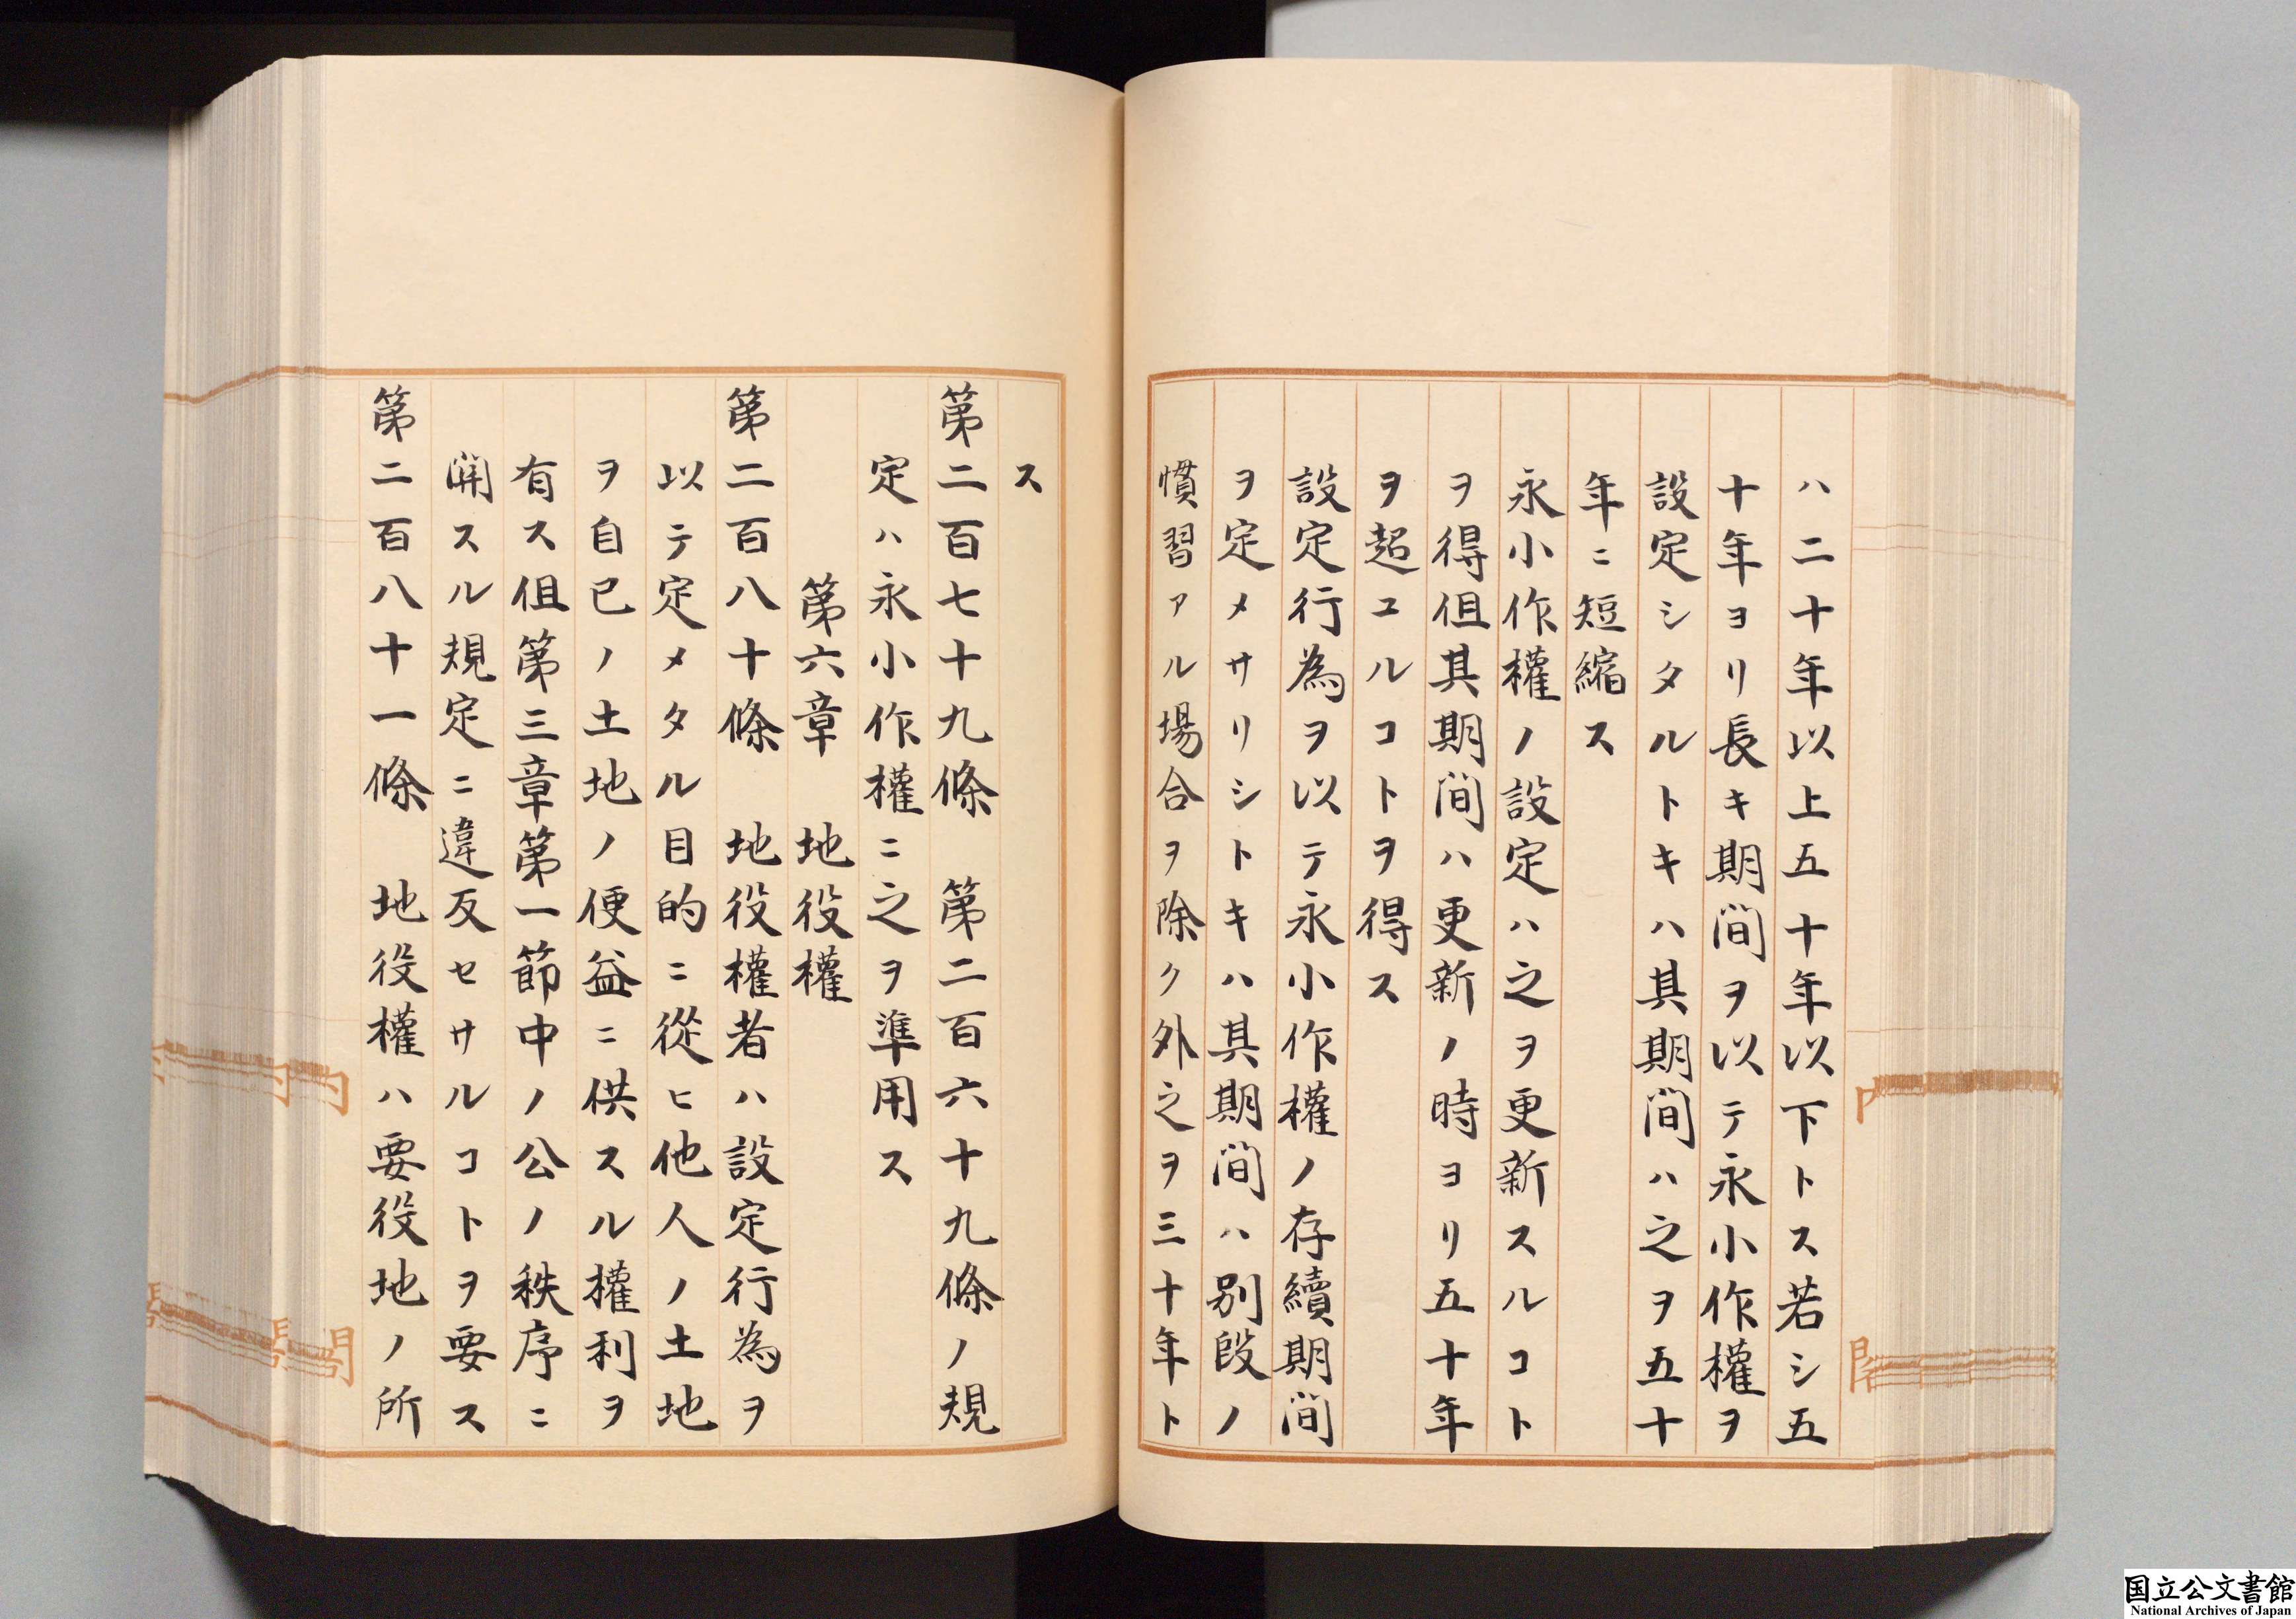 ハ二十年以上五十年以下トス若シ五
十年ヨリ長キ期間ヲ以テ永小作權ヲ
設定シタルトキハ其期間ハ之ヲ五十
年ニ短縮ス
永小作權ノ設定ハ之ヲ更新スルコト
ヲ得但其期間ハ更新ノ時ヨリ五十年
ヲ超ユルコトヲ得ス
設定行為ヲ以テ永小作權ノ存續期間
ヲ定メサリシトキハ其期間ハ別段ノ
慣習アル場合ヲ除ク外之ヲ三十年ト
ス
第二百七十九條 第二百六十九條ノ規
定ハ永小作權ニ之ヲ準用ス
第六章 地役權
第二百八十條 地役權者ハ設定行為ヲ
以テ定メタル目的ニ從ヒ他人ノ土地
ヲ自已ノ土地ノ便益ニ供スル權利ヲ
有ス但第三章第一節中ノ公ノ秩序ニ
關スル規定ニ違反セサルコトヲ要ス
第二百八十一條 地役權ハ要役地ノ所
国立公文書館
National Archives of Japan